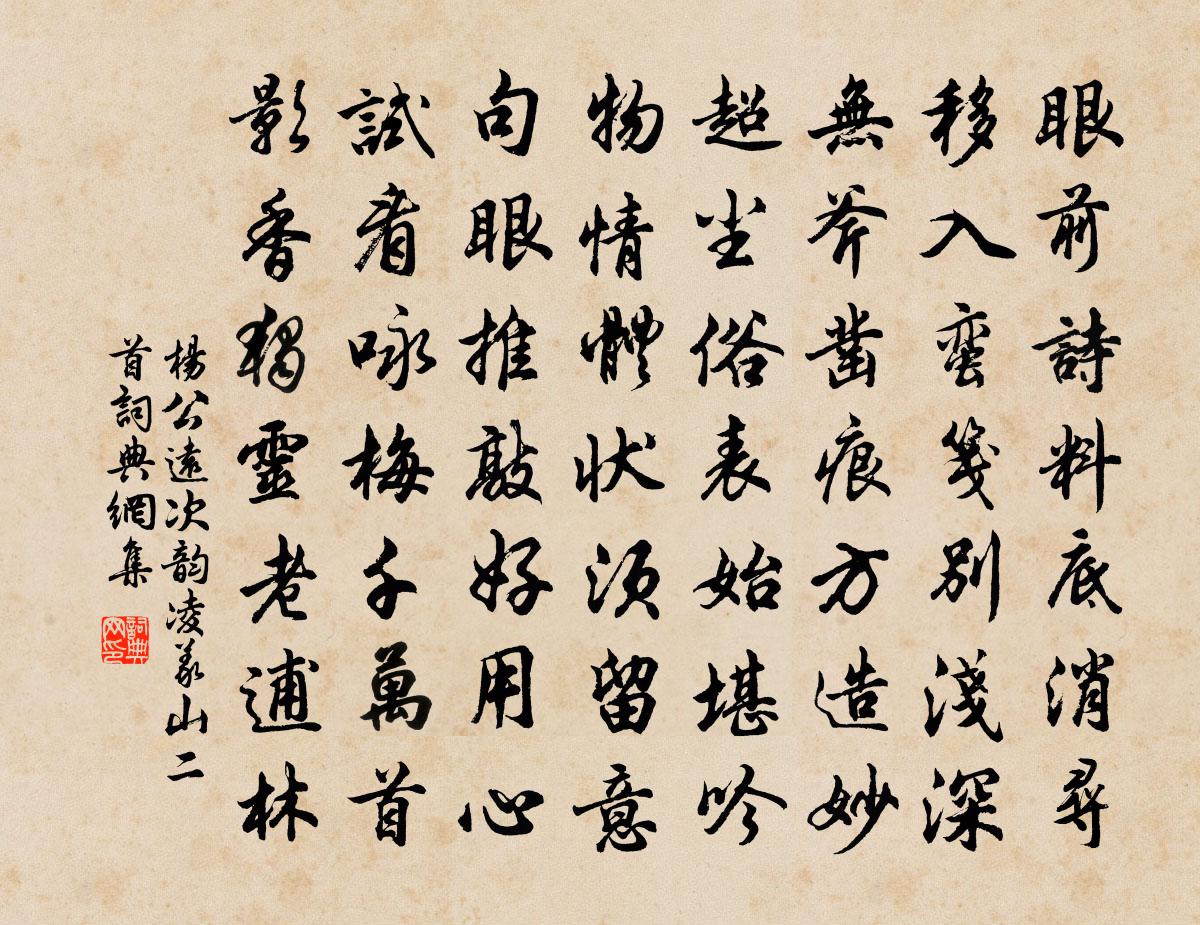 眼前詩料底消尋
移入蛮箋別淺深
無斧鑿痕方造妙
超尘俗表始堪吟
物情體状須留意
句眼推敲好用心
試看咏梅千萬首
影香独靈老逋林
楊公遠次韵凌義山二
首詞典網集
詞典网印